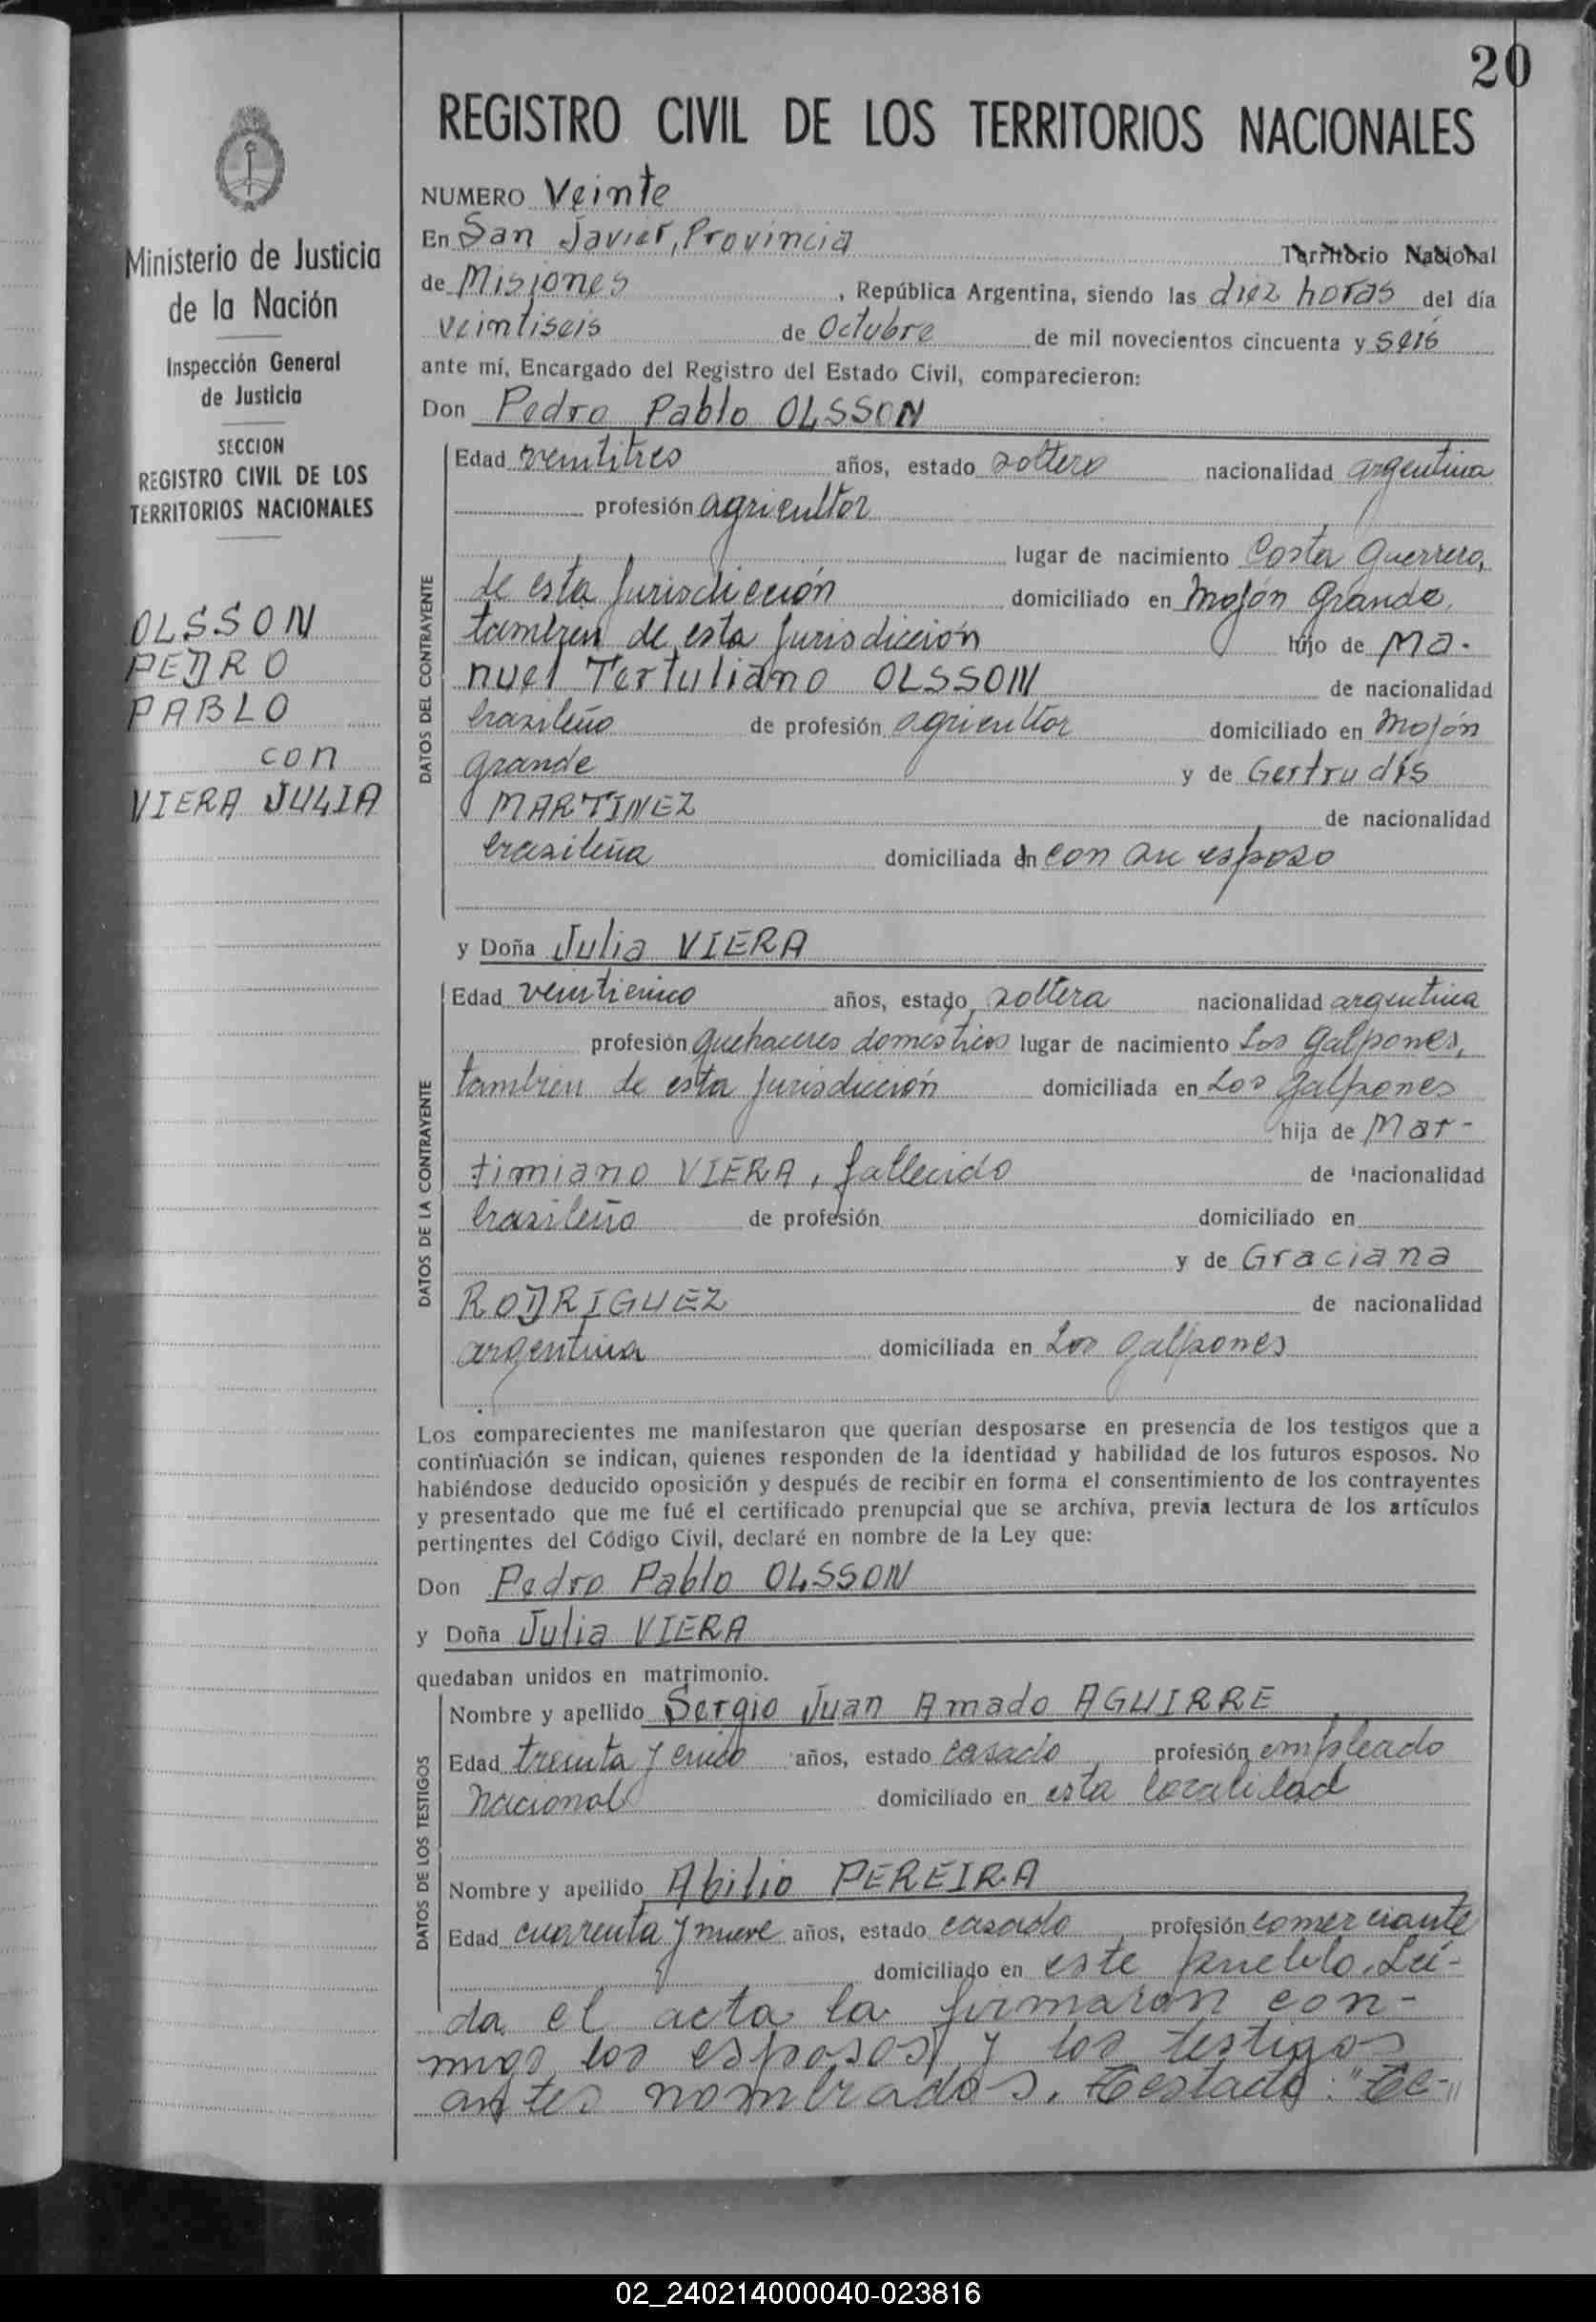 20
REGISTRO CIVIL DE LOS TERRITORIOS NACIONALES
Ministerio de Justicia
de la Nación
Inspección General
de Justicia
SECCION
REGISTRO CIVIL DE LOS
TERRITORIOS NACIONALES
OLSSON
PEDRO
PABLO
con
VIERA JULIA
NUMERO Veinte
En San Javier, Provincia Territorio Nacional
de Misiones, República Argentina, siendo las diez horas del día
veintiseis de Octubre de mil novecientos cincuenta y seis
ante mí, Encargado del Registro del Estado Civil, comparecieron:
Don Pedro Pablo OLSSON
DATOS DEL CONTRAYENTE
Edad veintitres años, estado soltero nacionalidad argentina
profesión agricultor
lugar de nacimiento Costa Guerrero,
de esta jurisdicción domiciliado en Mojón Grande,
tambien de esta jurisdicción hijo de Ma-
nuel Tertuliano OLSSON de nacionalidad
brasileño de profesión agricultor domiciliado en Mojón
Grande y de Gertrudis
MARTINEZ de nacionalidad
brasileña domiciliada en con su esposo
y Doña Julia VIERA
DATOS DE LA CONTRAYENTE
Edad veinticinco años, estado soltera nacionalidad argentina
profesión quehaceres domésticos lugar de nacimiento Los Galpones,
tambien de esta jurisdicción domiciliada en Los Galpones
hija de Mar-
timiano VIERA, fallecido de nacionalidad
brasileño de profesión domiciliado en
y de Graciana
RODRIGUEZ de nacionalidad
argentina domiciliada en Los Galpones
Los comparecientes me manifestaron que querían desposarse en presencia de los testigos que a
continuación se indican, quienes responden de la identidad y habilidad de los futuros esposos. No
habiéndose deducido oposición y después de recibir en forma el consentimiento de los contrayentes
y presentado que me fué el certificado prenupcial que se archiva, previa lectura de los artículos
pertinentes del Código Civil, declaré en nombre de la Ley que:
Don Pedro Pablo OLSSON
y Doña Julia VIERA
quedaban unidos en matrimonio.
DATOS DE LOS TESTIGOS
Nombre y apellido Sergio Juan Amado AGUIRRE
Edad treinta y cinco años, estado casado profesión empleado
nacional domiciliado en esta localidad
Nombre y apellido Abilio PEREIRA
Edad cuarenta y nueve años, estado casado profesión comerciante
domiciliado en este pueblo. Leí-
da el acta la firmaron con-
migo los esposos y los testigos
antes nombrados. Testado: "Te-"
02_240214000040-023816